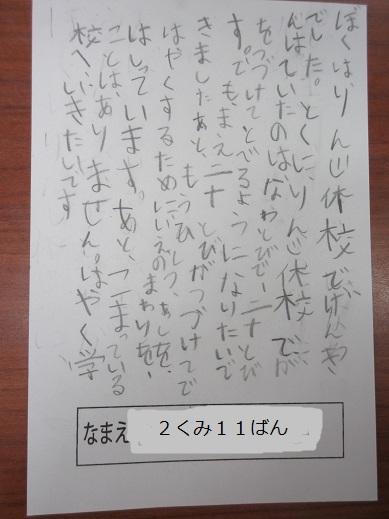 ぼくはりんじ休校でげんき
でした。とくにりんじ休校でが
んばていたのは、なわとびで二十とび
をつづけてとべるようになりたいで
す。でも、まえ二十とびがつづけてで
きましたあと、もうひとつ、あしを、
はやくするためにいえのまわりを、
はしっています。あと、こまっている
ことは、ありません。はやく学
校へ、いきたいです
なまえ ２くみ１１ばん